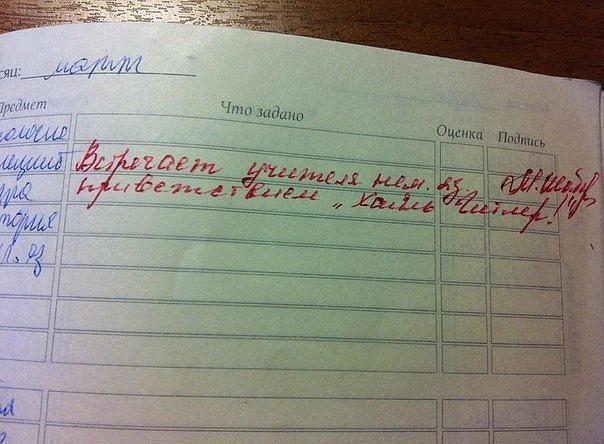 сяц: март
Предмет Что задано Оценка Подпись
ологие
Встречает учителя нем. яз.
приветствием „Хайль Гитлер!"
тория